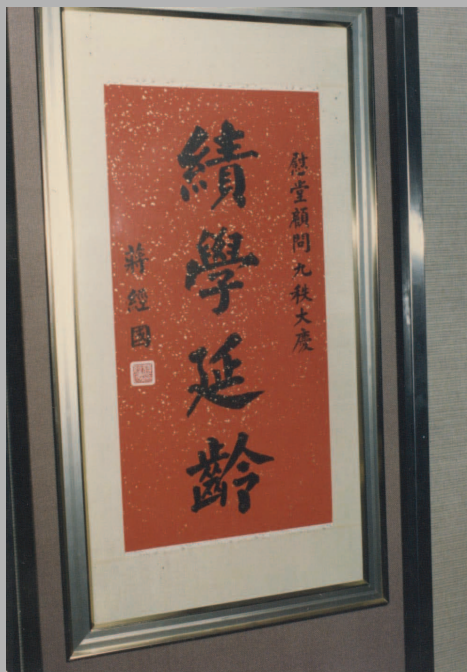 慰堂顧問九秩大慶
績學延齡
蔣經國